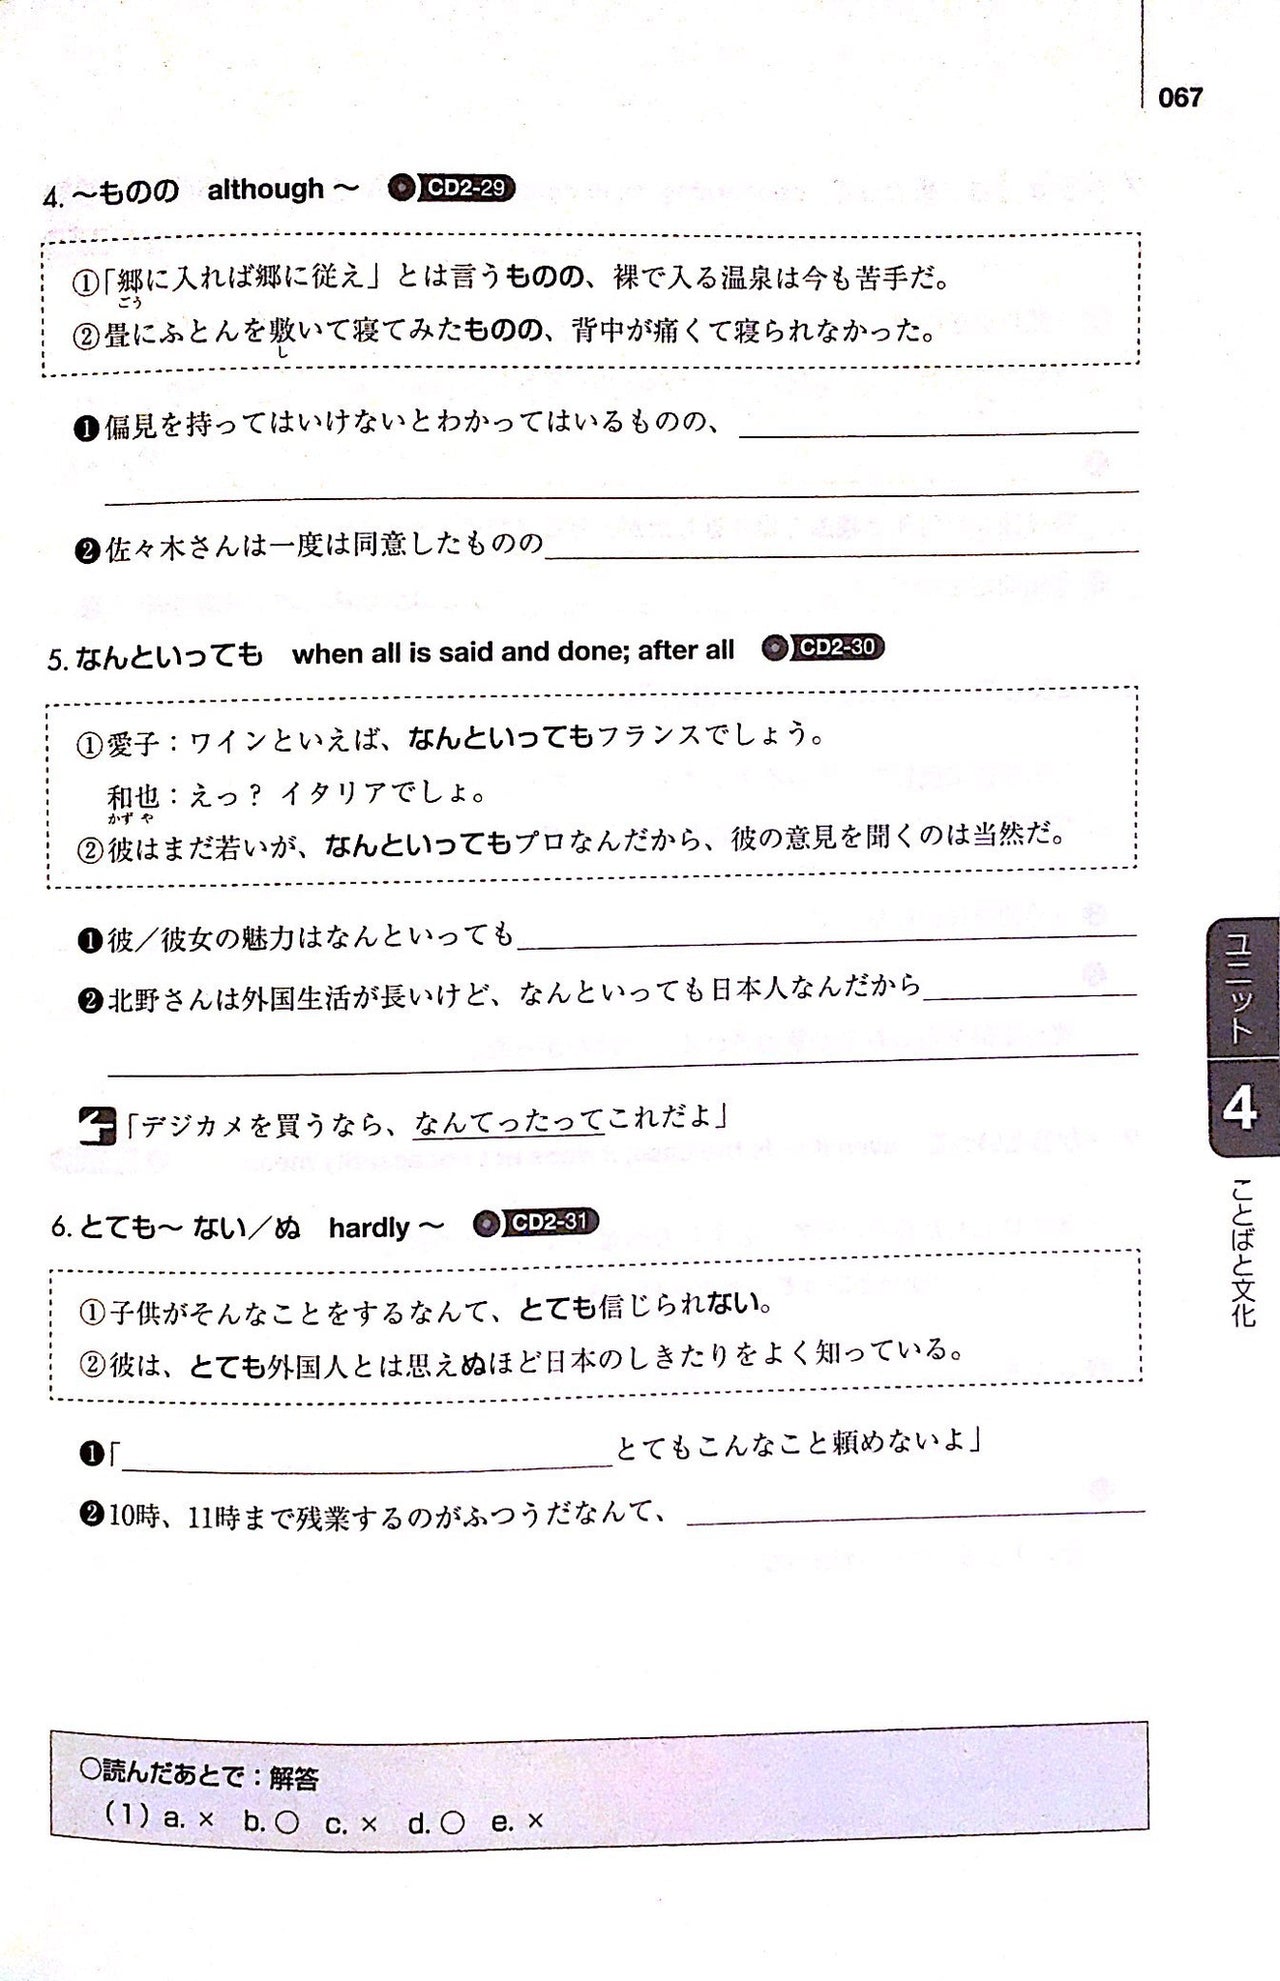 067
4. 〜ものの although 〜 CD2-29
①「郷に入れば郷に従え」とは言うものの、裸で入る温泉は今も苦手だ。
ごう
②畳にふとんを敷いて寝てみたものの、背中が痛くて寝られなかった。
し
❶偏見を持ってはいけないとわかってはいるものの、
❷佐々木さんは一度は同意したものの
5. なんといっても when all is said and done; after all CD2-30
①愛子：ワインといえば、なんといってもフランスでしょう。
和也：えっ？ イタリアでしょ。
かずや
②彼はまだ若いが、なんといってもプロなんだから、彼の意見を聞くのは当然だ。
❶彼／彼女の魅力はなんといっても
❷北野さんは外国生活が長いけど、なんといっても日本人なんだから
「デジカメを買うなら、なんてったってこれだよ」
6. とても〜 ない／ぬ hardly 〜 CD2-31
①子供がそんなことをするなんて、とても信じられない。
②彼は、とても外国人とは思えぬほど日本のしきたりをよく知っている。
❶「 とてもこんなこと頼めないよ」
❷10時、11時まで残業するのがふつうだなんて、
○読んだあとで：解答
(1) a. × b. ○ c. × d. ○ e. ×
ユニット
4
ことばと文化